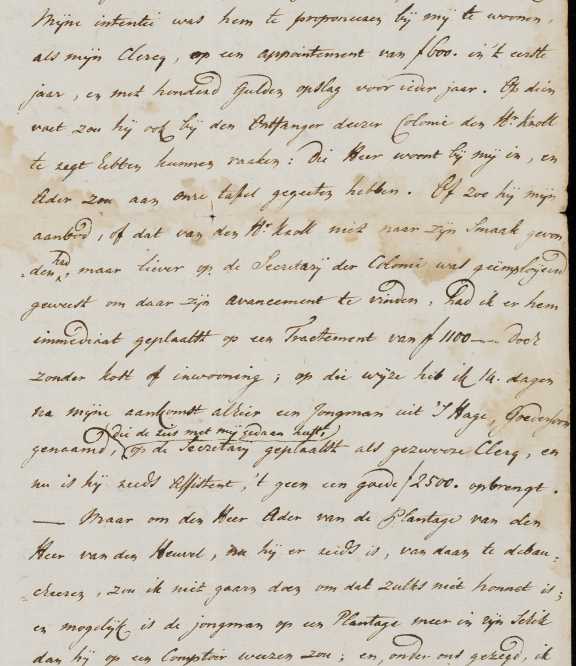 Mijne intentie was hem te proponeeren bij mij te woonen,
als mijn Clercq, op een appointement van ƒ600. in 't eerste
jaar, en met honderd Gulden opslag voor ieder jaar. Op dien
voet zou hij ook bij den Ontfanger deezer Colonie den Hr. Knoll
te regt hebben kunnen raaken: Die Heer woont bij mij in, en
Ader zou aan onze tafel gegeeten hebben. Of zoo hij mijn
aanbod, of dat van den Hr. Knoll niet naar zijn Smaak gevon-
„den had, maar liever op de Secretarij der Colonie was geëmploijeerd
geweest om daar zijn avancement te vinden; had ik er hem
immediaat geplaatst op een Tractement van ƒ1100-- Doch
zonder kost of inwooning; op die wijze heb ik 14. dagen
na mijne aankomst alhier een Jongman uit 's Hage,
genaamd, (die de reis met mij gedaan heeft,) op de Secretary geplaatst als gezwoore Clercq, en
nu is hij reeds Assistent, 't geen een goede ƒ2500. opbrengt.
— Maar om den Heer Ader van de Plantage van den
Heer van den Heuvel, nu hij er reeds is, van daan te debau-
„cheeren, zou ik niet gaarn doen om dat zulks niet honnet is;
en mogelijk is de jongman op een Plantage meer in zijn Schik
dan hij op een Comptoir weezen zou; en, onder ons gezegd, ik